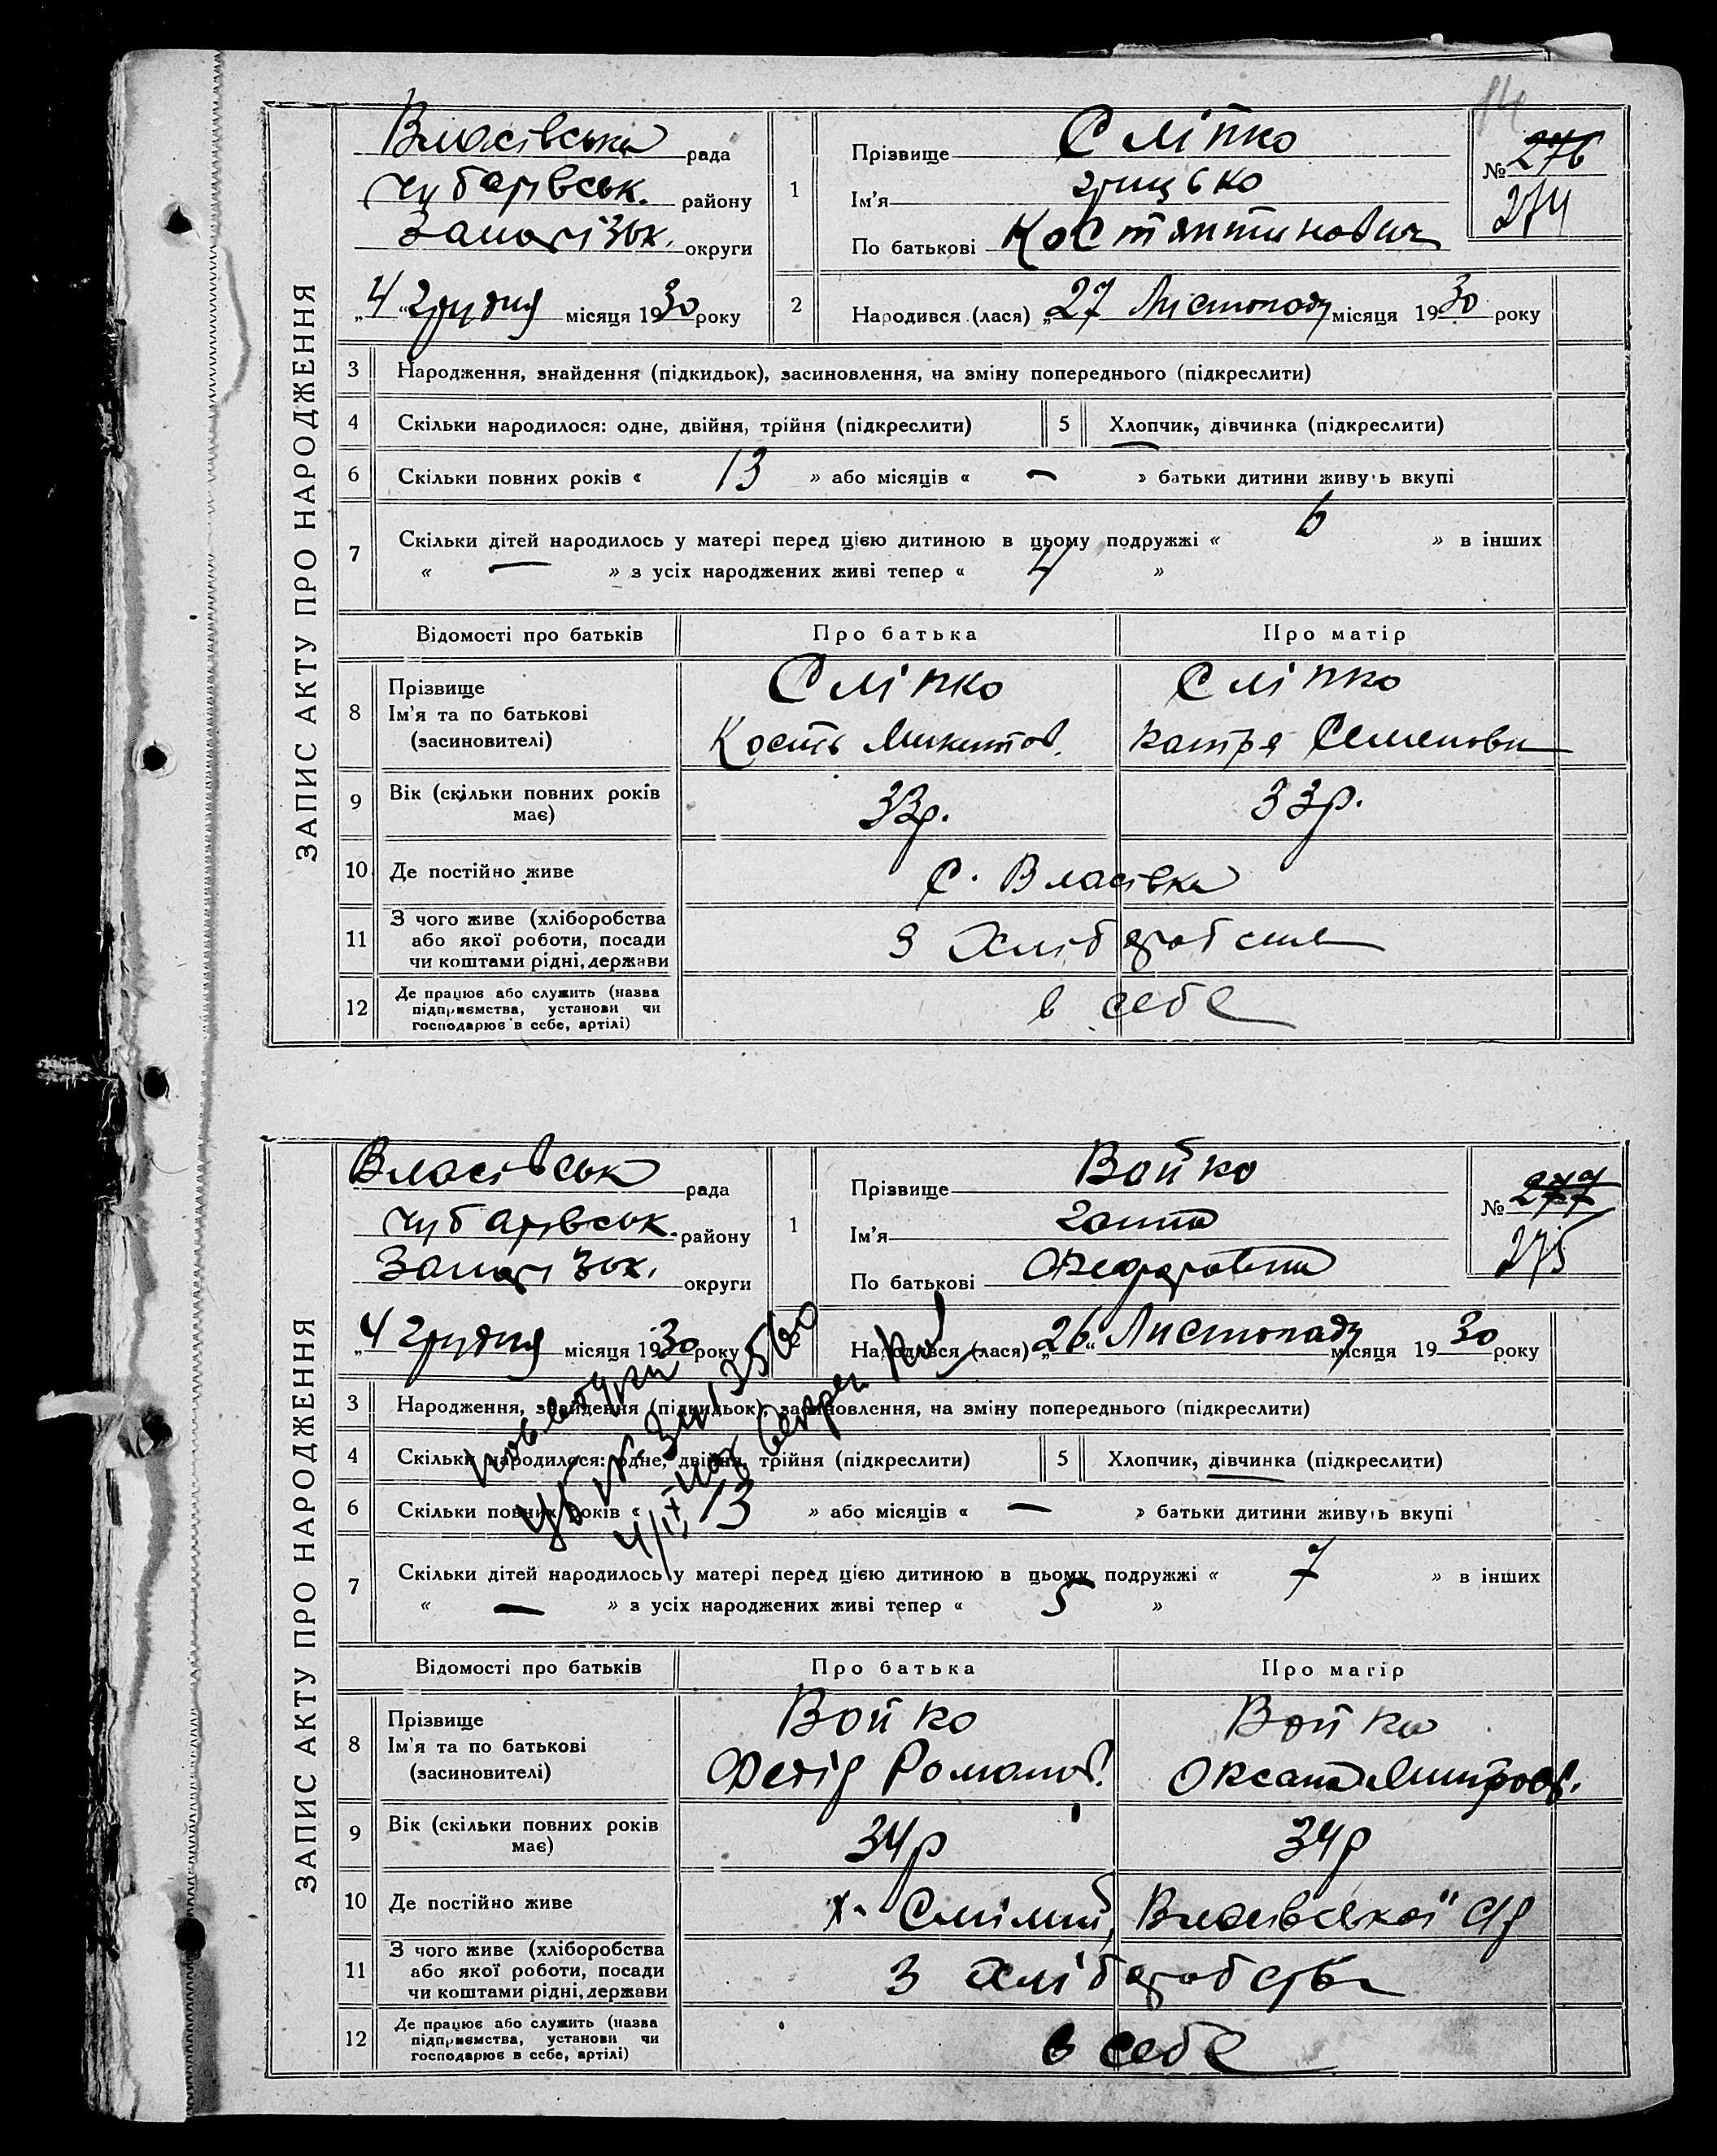 ЗАПИС АКТУ ПРО НАРОДЖЕННЯ
Власівська рада
Чубарівськ. району
Запорізьк. округи
„4“ Грудня місяця 1930 року
1
Прізвище Сліпко
Ім'я Грицько
По батькові Костянтинович
№ 276
274
2
Народився (лася) „27 Листопаду місяця 1930 року
3 Народження, знайдення (підкидьок), засиновлення, на зміну попереднього (підкреслити)
4 Скільки народилося: одне, двійня, трійня (підкреслити) 5 Хлопчик, дівчинка (підкреслити)
6 Скільки повних років « 13 » або місяців « — » батьки дитини живуть вкупі
7 Скільки дітей народилось у матері перед цією дитиною в цьому подружжі « 6 » в інших
« — » з усіх народжених живі тепер « 4 »
Відомості про батьків Про батька Про матір
8 Прізвище Сліпко Сліпко
Ім'я та по батькові Кость Микитов. Катря Семеновн
(засиновителі)
9 Вік (скільки повних років має) 33р. 33р.
10 Де постійно живе С. Власівка
11 З чого живе (хліборобства
або якої роботи, посади З хліборобства
чи коштами рідні, держави
12 Де працює або служить (назва
підприємства, установи чи в себе
господарює в себе, артілі)
ЗАПИС АКТУ ПРО НАРОДЖЕННЯ
Власівськ рада
Чубарівськ. району
Запорізьк. округи
„4 Грудня місяця 1930 року
1
Прізвище Бойко
Ім'я Ганна
По батькові Федоровна
№ 277
275
Народився (лася) „26“ Листопаду місяця 1930 року
3 Народження, знайдення (підкидьок), засиновлення, на зміну попереднього (підкреслити)
4 Скільки народилося: одне, двійня, трійня (підкреслити) 5 Хлопчик, дівчинка (підкреслити)
6 Скільки повних років « 13 » або місяців « — » батьки дитини живуть вкупі
7 Скільки дітей народилось у матері перед цією дитиною в цьому подружжі « 7 » в інших
« — » з усіх народжених живі тепер « 5 »
Відомості про батьків Про батька Про матір
8 Прізвище Бойко Бойко
Ім'я та по батькові Федір Романов. Оксана Дмитров.
(засиновителі)
9 Вік (скільки повних років має) 34р 34р
10 Де постійно живе х. Смілий, Власівської с/р
11 З чого живе (хліборобства
або якої роботи, посади З хліборобства
чи коштами рідні, держави
12 Де працює або служить (назва
підприємства, установи чи в себе
господарює в себе, артілі)